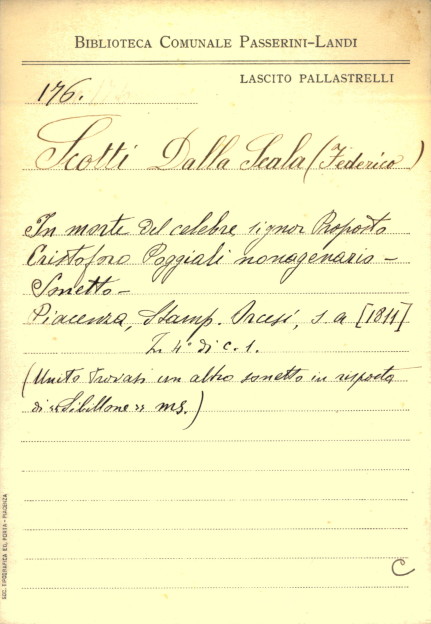 BIBLIOTECA COMUNALE PASSERINI-LANDI
LASCITO PALLASTRELLI
176.
Scotti Dalla Scala (Federico)
In morte del celebre signor Proposto
Cristoforo Poggiali nonagenario -
Sonetto -
Piacenza, Stamp. Orcesi, s. a [1811]
In 4° di c. 1.
(Unito trovasi un altro sonetto in risposta
di "Sibillone" ms.)
C
SOC. TIPOGRAFICA ED. PORTA - PIACENZA